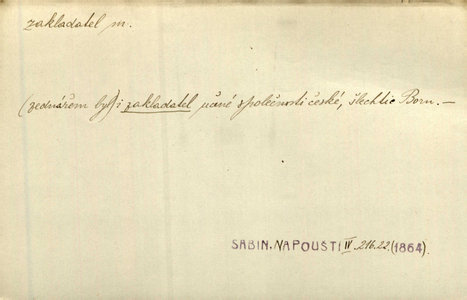 zakladatel m.
(zednářem byl) i zakladatel učené společnosti české, šlechtic Born. —
SABIN. NAPOUŠTI IV 216.22. (1864).